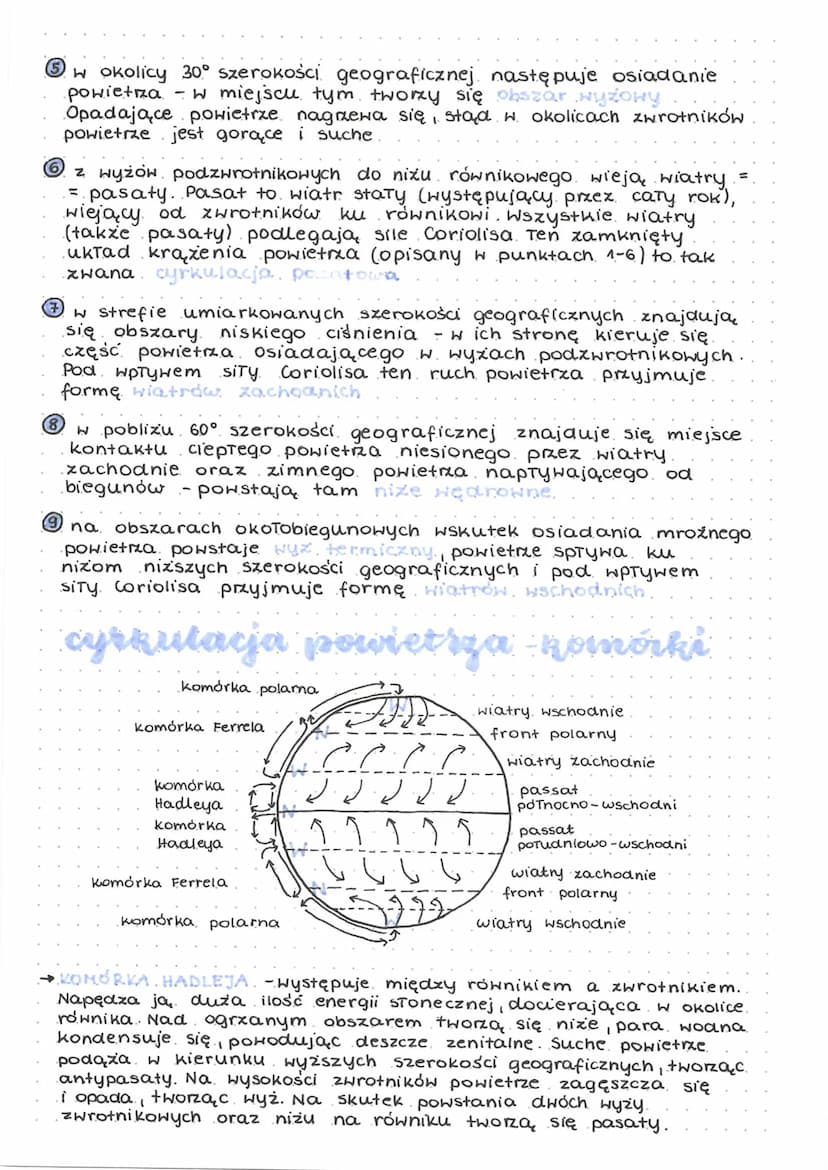 5 w okolicy 30° szerokości geograficznej następuje osiadanie
powietrza - w miejscu tym tworzy się obszar wyżowy
Opadające powietrze nagrzewa się, stąd w okolicach zwrotników
powietrze jest gorące i suche.
6 z wyżów podzwrotnikowych do niżu równikowego wieją wiatry =
= pasaty. Pasat to wiatr stały (występujący przez cały rok),
wiejący od zwrotników ku równikowi. Wszystkie wiatry
(także pasaty) podlegają sile Coriolisa. Ten zamknięty
układ krążenia powietrza (opisany w punktach 1-6) to tak
zwana cyrkulacja pasatowa
7 w strefie umiarkowanych szerokości geograficznych znajdują
się obszary niskiego ciśnienia - w ich stronę kieruje się
część powietrza osiadającego w wyżach podzwrotnikowych.
Pod wpływem siły Coriolisa ten ruch powietrza przyjmuje
formę wiatrów zachodnich
8 w pobliżu 60° szerokości geograficznej znajduje się miejsce
kontaktu ciepłego powietrza niesionego przez wiatry
zachodnie oraz zimnego powietrza napływającego od
biegunów - powstają tam niże wędrowne.
9 na obszarach okołobiegunowych wskutek osiadania mroźnego
powietrza powstaje wyż termiczny, powietrze spływa ku
niżom niższych szerokości geograficznych i pod wpływem
siły Coriolisa przyjmuje formę wiatrów wschodnich.
cyrkulacja powietrza - komórki
komórka polarna
W
wiatry wschodnie
komórka Ferrela
N
front polarny
W
wiatry zachodnie
komórka
Hadleya
passat
północno-wschodni
N
komórka
Hadleya
passat
południowo-wschodni
W
komórka Ferrela
wiatry zachodnie
N
front polarny
komórka polarna
W
wiatry wschodnie
→ KOMÓRKA HADLEJA - występuje między równikiem a zwrotnikiem.
Napędza ją duża ilość energii słonecznej, docierająca w okolice
równika. Nad ogrzanym obszarem tworzą się niże, para wodna
kondensuje się, powodując deszcze zenitalne. Suche powietrze
podąża w kierunku wyższych szerokości geograficznych, tworząc
antypasaty. Na wysokości zwrotników powietrze zagęszcza się
i opada, tworząc wyż. Na skutek powstania dwóch wyży
zwrotnikowych oraz niżu na równiku tworzą się pasaty.